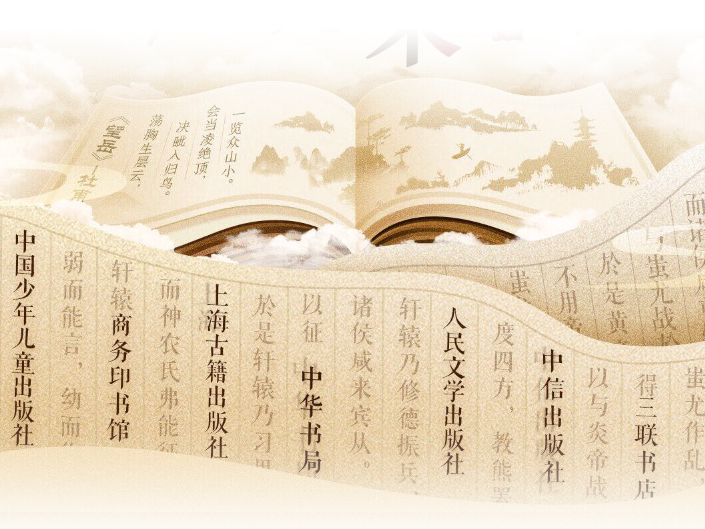 《望岳》—杜
荡胸生层云，
决眦入归鸟。
会当凌绝顶，
一览众山小。
中国少年儿童出版社
弱而能言，幼而
轩辕
商务印书馆
而神农氏弗能征
上海古籍出版社
於是轩辕乃习
以征
中华书局
诸侯咸来宾从。
轩辕乃修德振兵、
人民文学出版社
度四方，教熊罴
中信出版社
以与炎帝战
得
三联书店
蚩尤作乱，
蚩
不用帝
於是黄
蚩尤战於
而诸侯